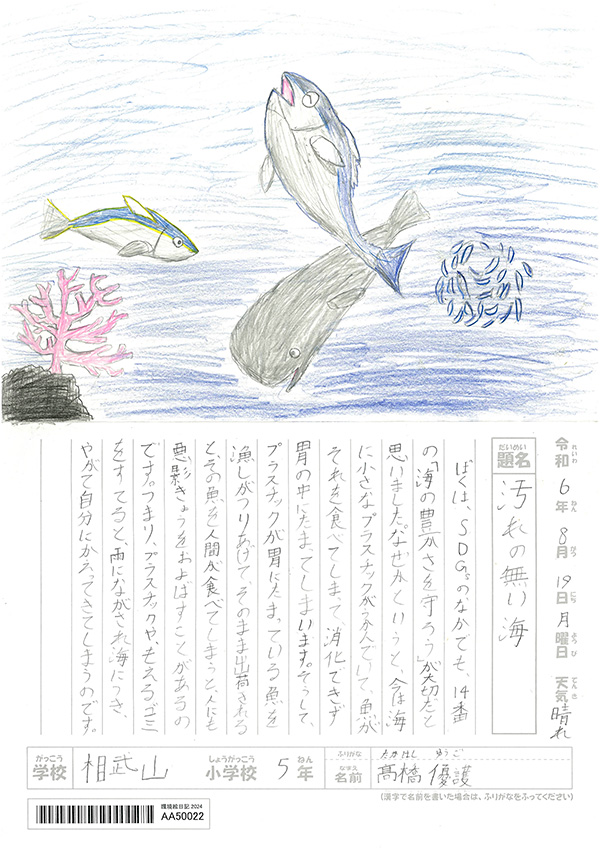 令和6年8月19日月曜日 天気晴れ
れいわ ねん がつ にち ようび てんき
だいめい
題名 汚れの無い海
ぼくは、SDGsのなかでも、14番
の「海の豊かさを守ろう」が大切だと
思いました。なぜかというと、今は海
に小さなプラスチックがうかんでいて、魚が
それを食べてしまって、消化できず
胃の中にたまってしまいます。そうして、
プラスチックが胃にたまっている魚を
漁しがつりあげて、そのまま出荷される
と、その魚を人間が食べてしまうと、人にも
悪影きょうをおよぼすことがあるの
です。つまり、プラスチックや、もえるゴミ
をすてると、雨にながされ海につき、
やがて自分にかえってきてしまうのです。
がっこう しょうがっこう ねん
学校 相武山 小学校 5年
ふりがな たかはし ゆうご
なまえ
名前 髙橋 優護
(漢字で名前を書いた場合は、ふりがなをふってください)
環境絵日記 2024
AA50022